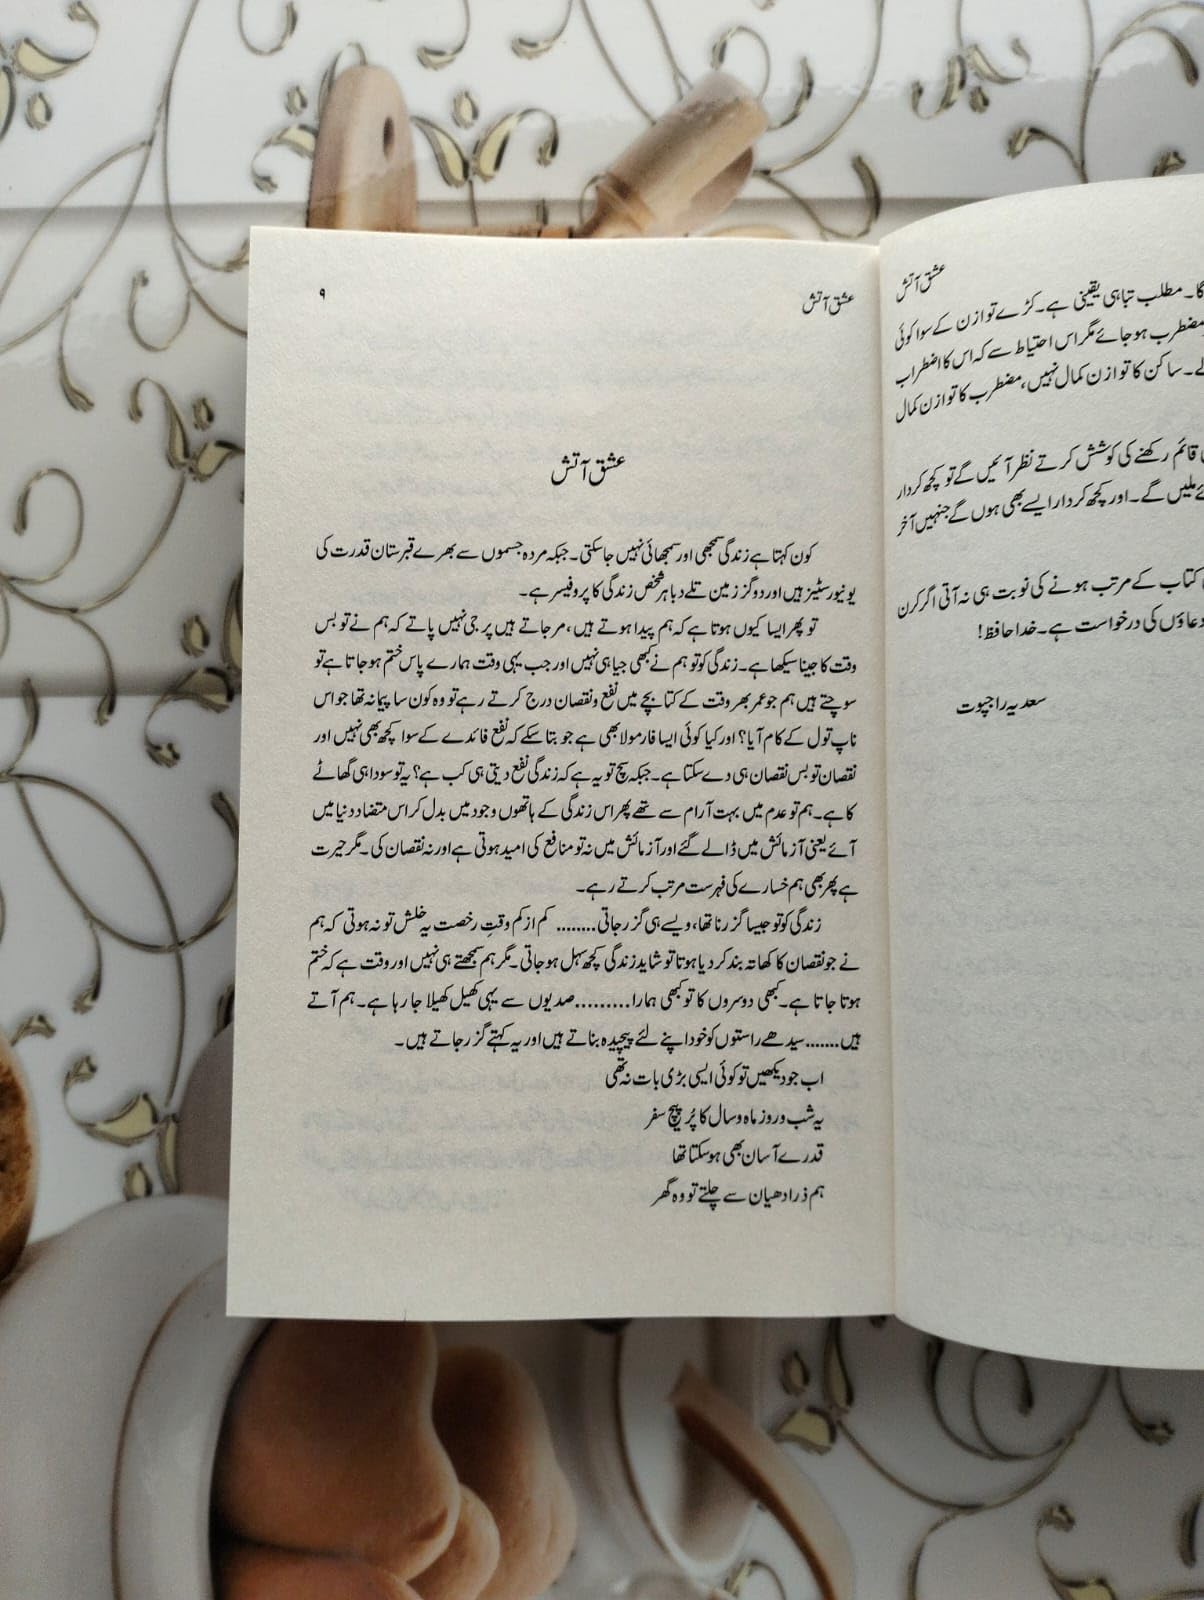 عشق آتش ۹
عشق آتش
کون کہتا ہے زندگی سمجھی اور سمجھائی نہیں جاسکتی۔ جبکہ مردہ جسموں سے بھرے قبرستان قدرت کی
یونیورسٹیز ہیں اور دو گز زمین تلے دبا ہر شخص زندگی کا پروفیسر ہے۔
تو پھر ایسا کیوں ہوتا ہے کہ ہم پیدا ہوتے ہیں، مرجاتے ہیں پر جی نہیں پاتے کہ ہم نے تو بس
وقت کا جینا سیکھا ہے۔ زندگی کو تو ہم نے کبھی جیا ہی نہیں اور جب یہی وقت ہمارے پاس ختم ہو جاتا ہے تو
سوچتے ہیں ہم جو عمر بھر وقت کے کتابچے میں نفع و نقصان درج کرتے رہے تو وہ کون سا پیمانہ تھا جو اس
ناپ تول کے کام آیا؟ اور کیا کوئی ایسا فارمولا بھی ہے جو بتا سکے کہ نفع فائدے کے سوا کچھ بھی نہیں اور
نقصان تو بس نقصان ہی دے سکتا ہے۔ جبکہ سچ تو یہ ہے کہ زندگی نفع دیتی ہی کب ہے؟ یہ تو سودا ہی گھاٹے
کا ہے۔ ہم تو عدم میں بہت آرام سے تھے پھر اس زندگی کے ہاتھوں وجود میں بدل کر اس متضاد دنیا میں
آئے یعنی آزمائش میں ڈالے گئے اور آزمائش میں نہ تو منافع کی امید ہوتی ہے اور نہ نقصان کی۔ مگر حیرت
ہے پھر بھی ہم خسارے کی فہرست مرتب کرتے رہے۔
زندگی کو تو جیسا گزرنا تھا، ویسے ہی گزر جاتی ........ کم از کم وقتِ رخصت یہ خلش تو نہ ہوتی کہ ہم
نے جو نقصان کا کھاتہ بند کر دیا ہوتا تو شاید زندگی کچھ سہل ہو جاتی۔ مگر ہم سمجھتے ہی نہیں اور وقت ہے کہ ختم
ہوتا جاتا ہے۔ کبھی دوسروں کا تو کبھی ہمارا.........صدیوں سے یہی کھیل کھیلا جا رہا ہے۔ ہم آتے
ہیں.......سیدھے راستوں کو خود اپنے لئے پیچیدہ بناتے ہیں اور یہ کہتے گزر جاتے ہیں۔
اب جو دیکھیں تو کوئی ایسی بڑی بات نہ تھی
یہ شب و روز ماہ و سال کا پُر پیچ سفر
قدرے آسان بھی ہو سکتا تھا
ہم ذرا دھیان سے چلتے تو وہ گھر
عشق آتش
گا۔ مطلب تباہی یقینی ہے۔ کڑے توازن کے سوا کوئی
مضطرب ہو جائے مگر اس احتیاط سے کہ اس کا اضطراب
لے۔ ساکن کا توازن کمال نہیں، مضطرب کا توازن کمال
قائم رکھنے کی کوشش کرتے نظر آئیں گے تو کچھ کردار
ملیں گے۔ اور کچھ کردار ایسے بھی ہوں گے جنہیں آخر
کتاب کے مرتب ہونے کی نوبت ہی نہ آتی اگر کرن
دعاؤں کی درخواست ہے۔ خدا حافظ!
سعدیہ راجپوت